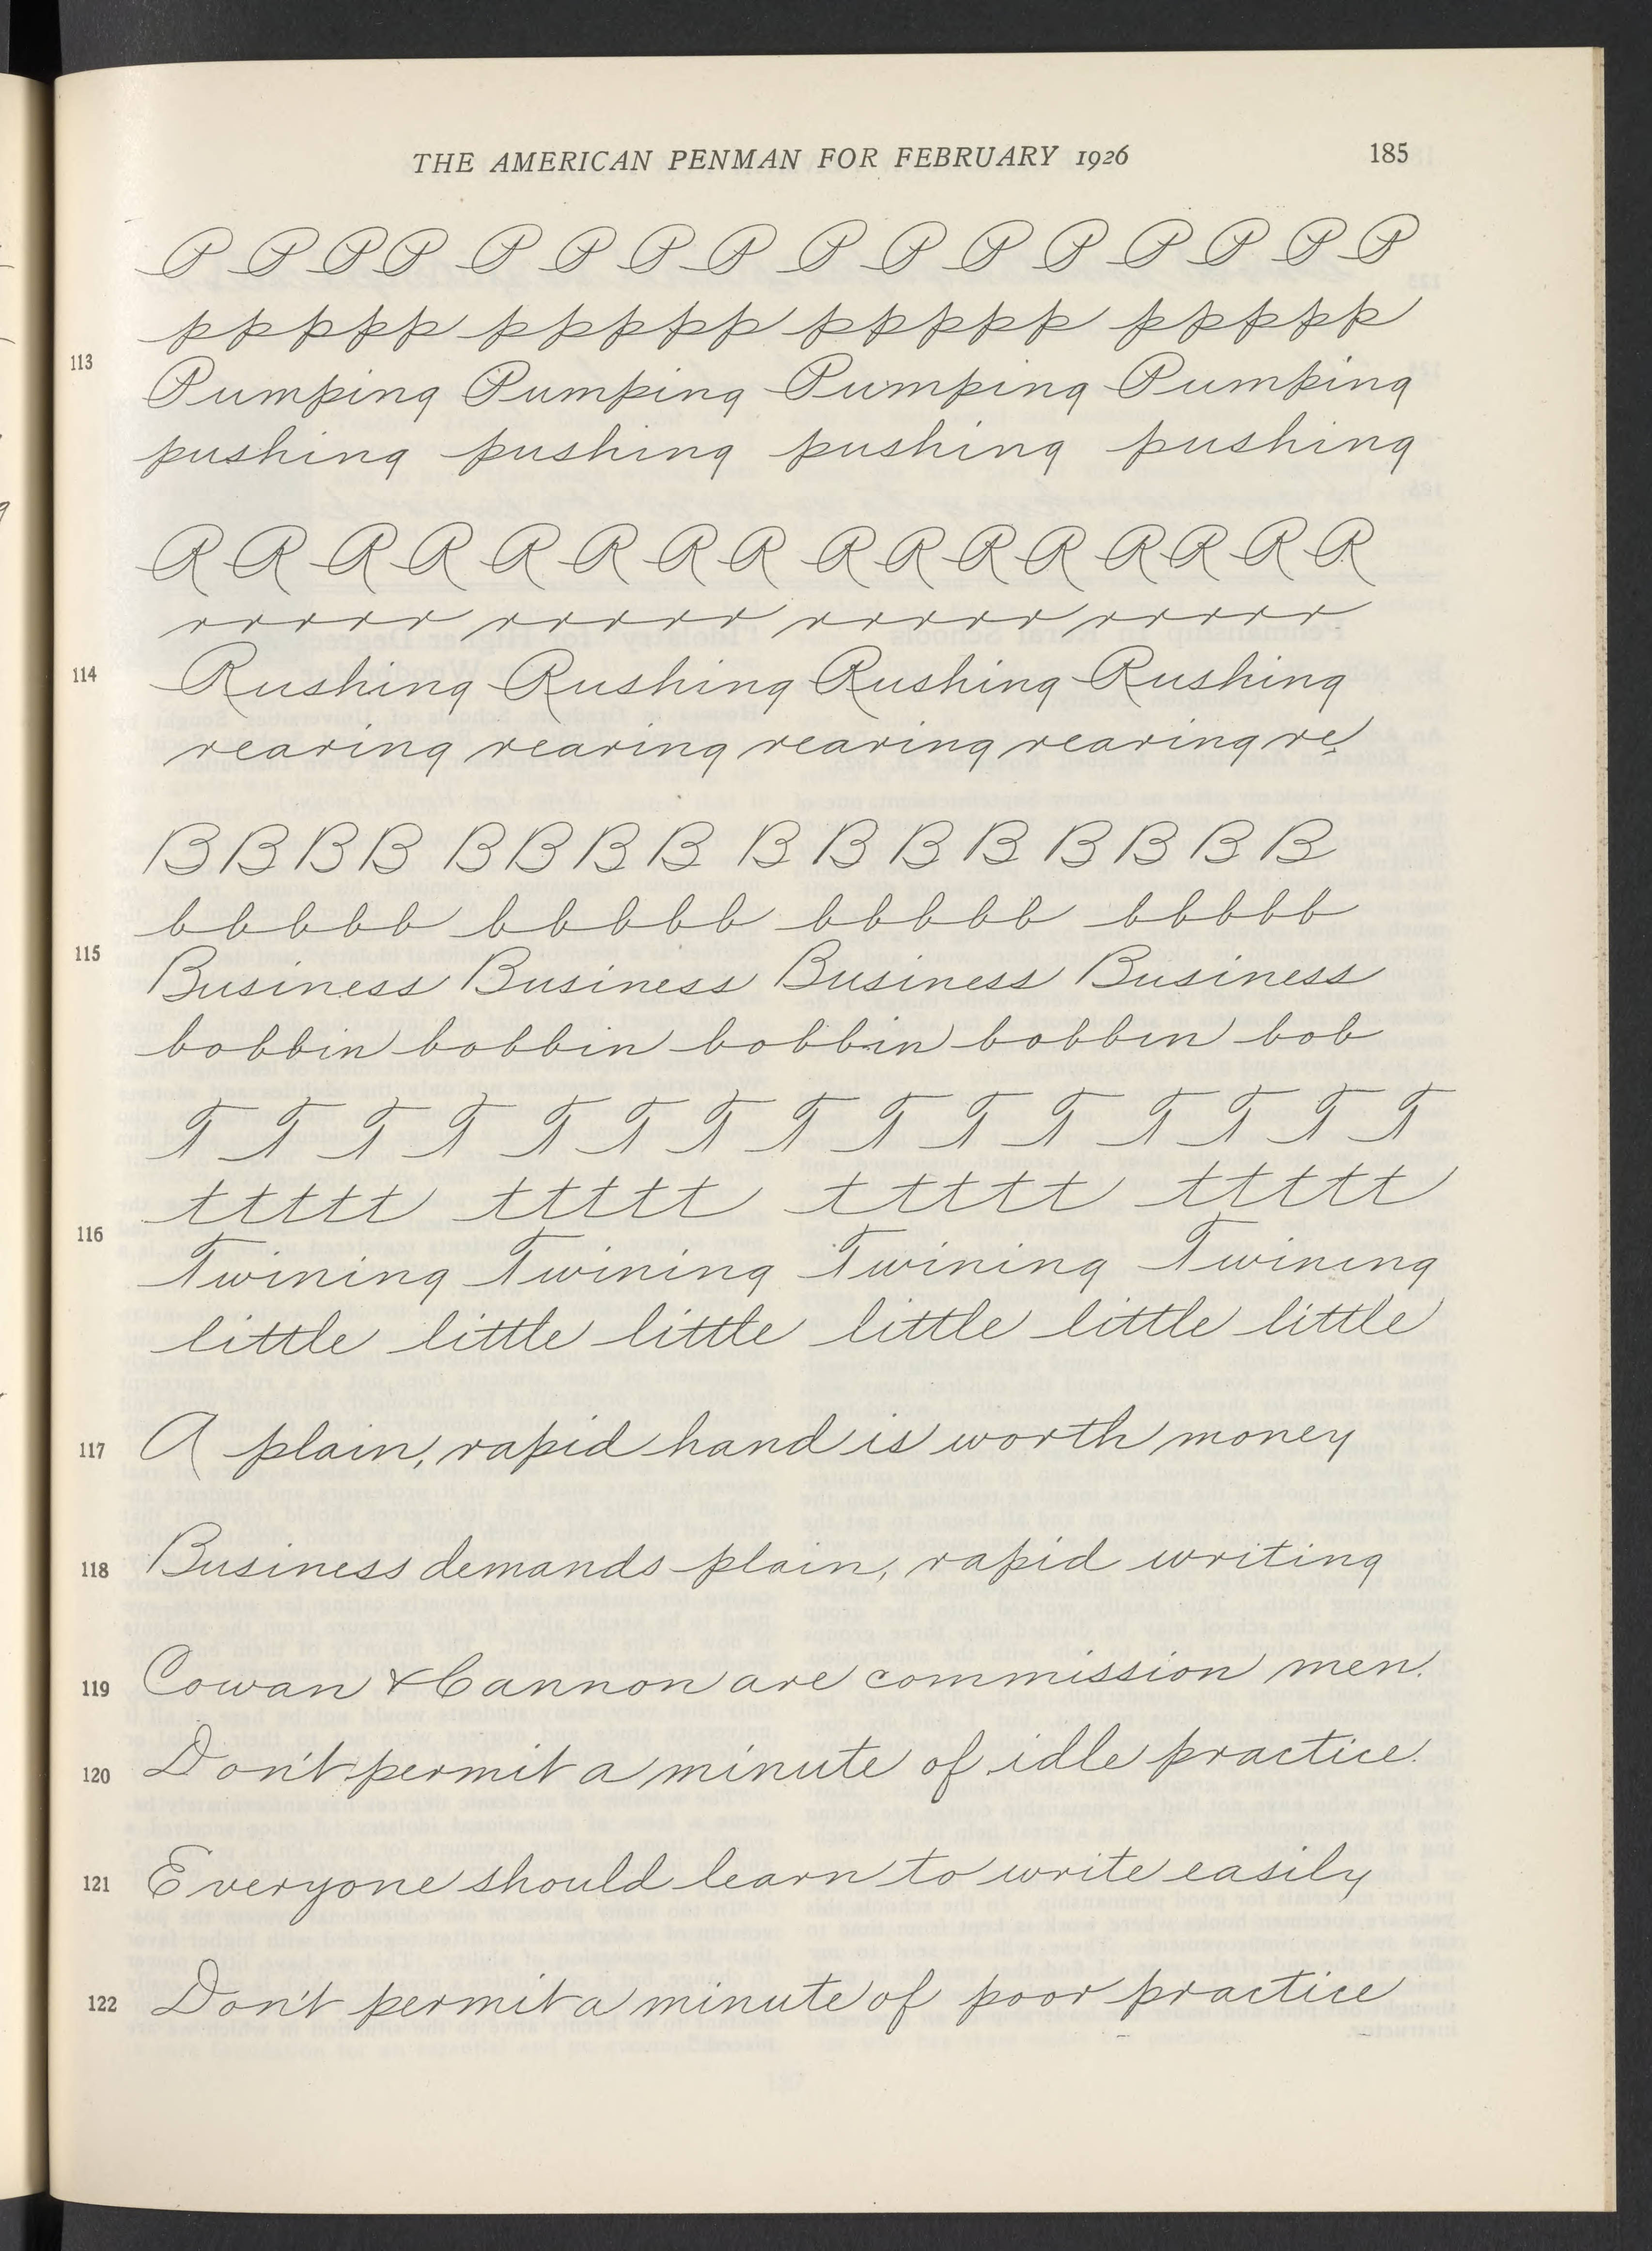 THE AMERICAN PENMAN FOR FEBRUARY 1926 185
P P P P P P P P P P P P P P P P
ppppp ppppp ppppp ppppp
113 Pumping Pumping Pumping Pumping
pushing pushing pushing pushing
R R R R R R R R R R R R R R R R
rrrrr rrrrr rrrrr rrrrr
114 Rushing Rushing Rushing Rushing
rearing rearing rearing rearing re
B B B B B B B B B B B B B B B B
bbbbb bbbbb bbbbb bbbbb
115 Business Business Business Business
bobbin bobbin bobbin bobbin bob
T T T T T T T T T T T T T T T
ttttt ttttt ttttt ttttt
116 Twining Twining Twining Twining
little little little little little little
117 A plain, rapid hand is worth money
118 Business demands plain, rapid writing
119 Cowan & Cannon are commission men.
120 Don't permit a minute of idle practice.
121 Everyone should learn to write easily
122 Don't permit a minute of poor practice